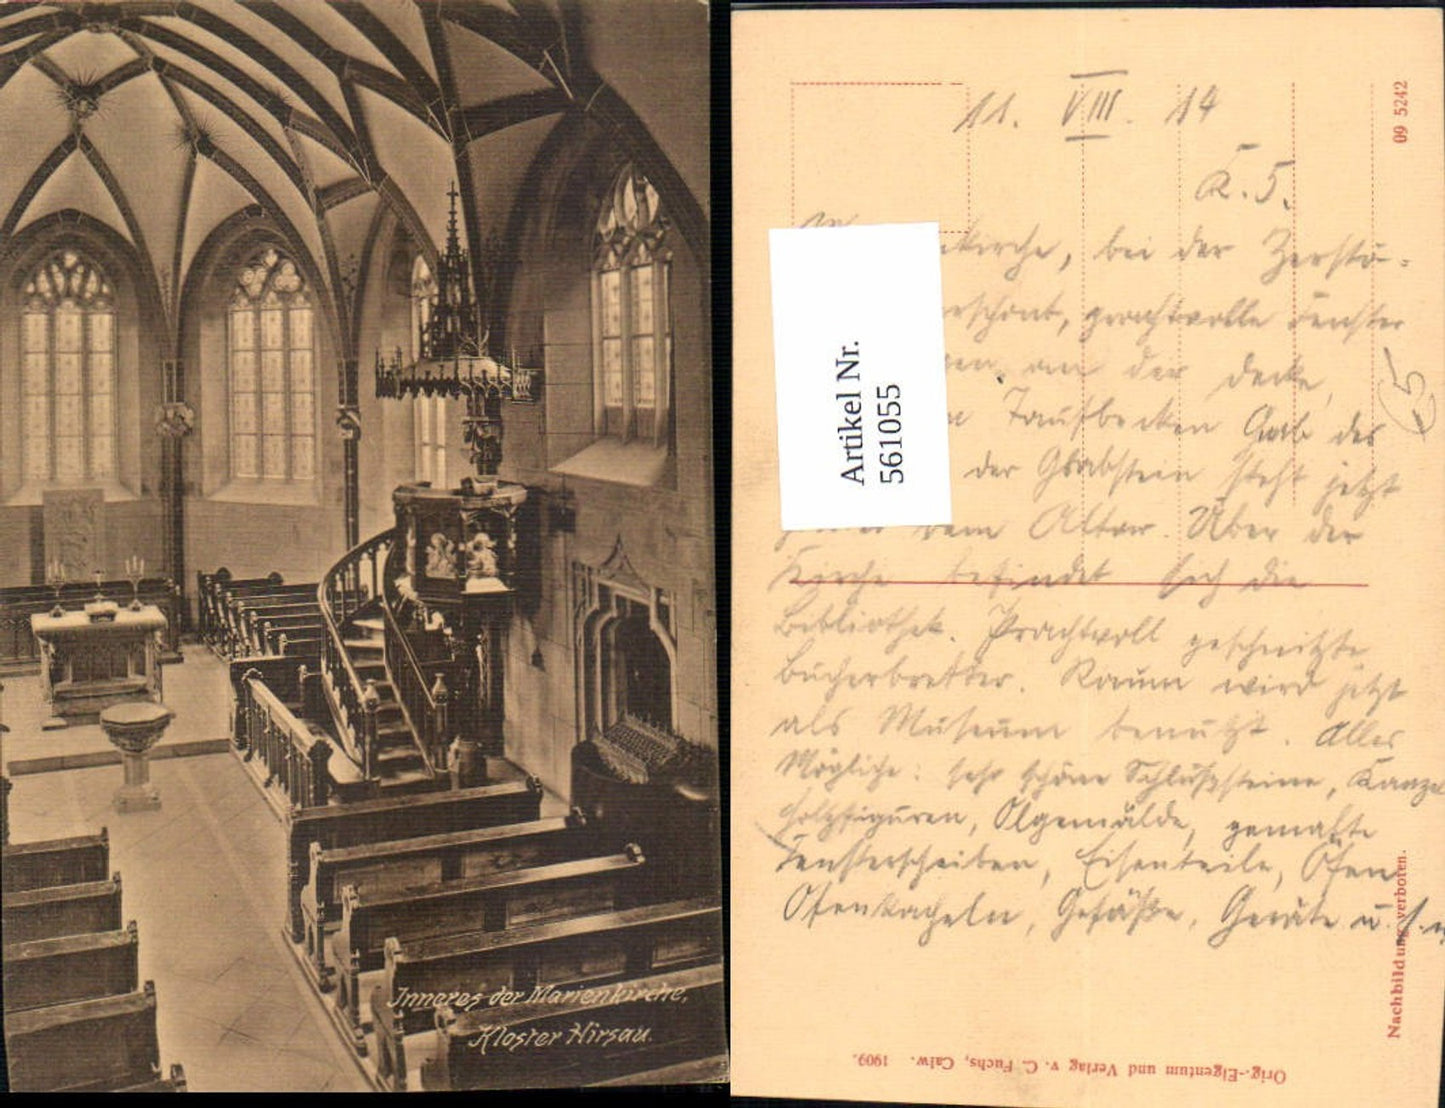 Inneres der Marienkirche,
Kloster Hirsau.
11. VIII. 14
K. 5.
kirche, bei der Zerstö-
erschont, prachtvolle Fenster
an der Decke,
Taufbecken Grab des
der Grabstein steht jetzt
dem Altar. Über der
Kirche befindet sich die
Bibliothek. Prachtvoll geschnitzte
Bücherbretter. Raum wird jetzt
als Museum benutzt. Alles
Mögliche: sehr schöne Schlußsteine, Kanzel
Holzfiguren, Ölgemälde, gemalte
Fensterscheiben, Eisenteile, Öfen
Ofenkacheln, Gefäße, Geräte u.s.w
Artikel Nr.
561055
09 5242
Nachbildung verboten.
Orig.-Eigentum und Verlag v. C. Fuchs, Calw. 1909.